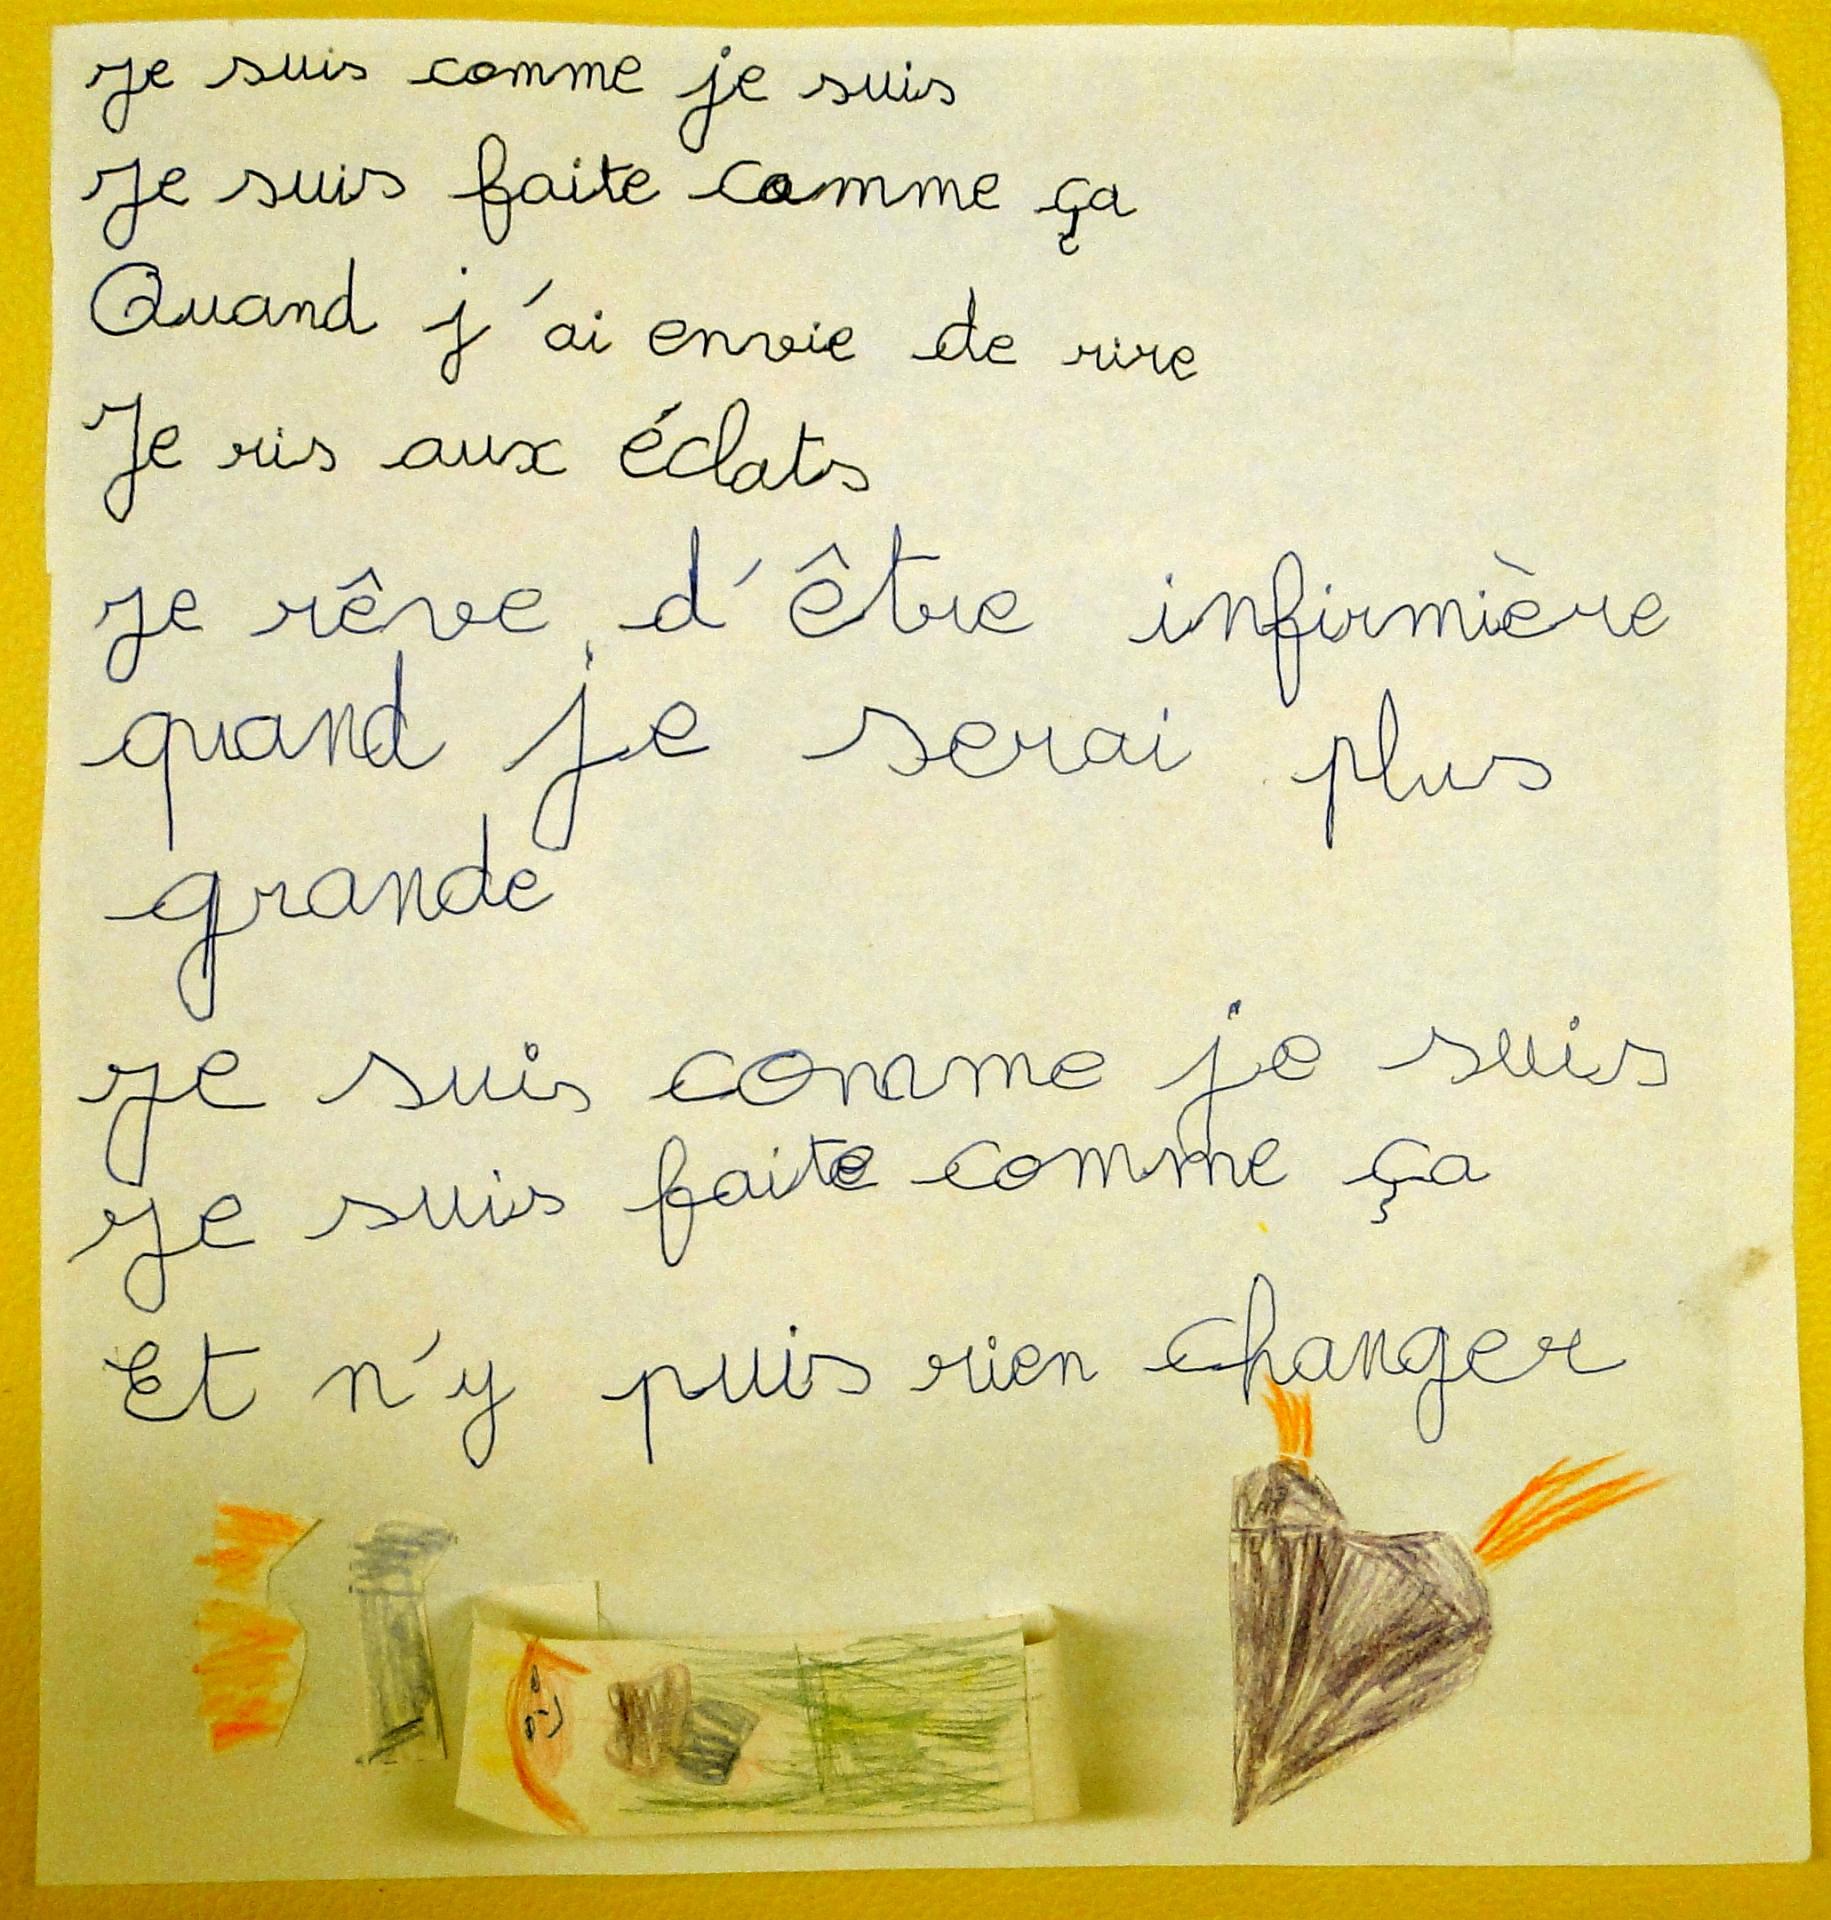 Je suis comme je suis
Je suis faite comme ça
Quand j'ai envie de rire
Je ris aux éclats
Je rêve d'être infirmière
quand je serai plus
grande
Je suis comme je suis
Je suis faite comme ça
Et n'y puis rien changer